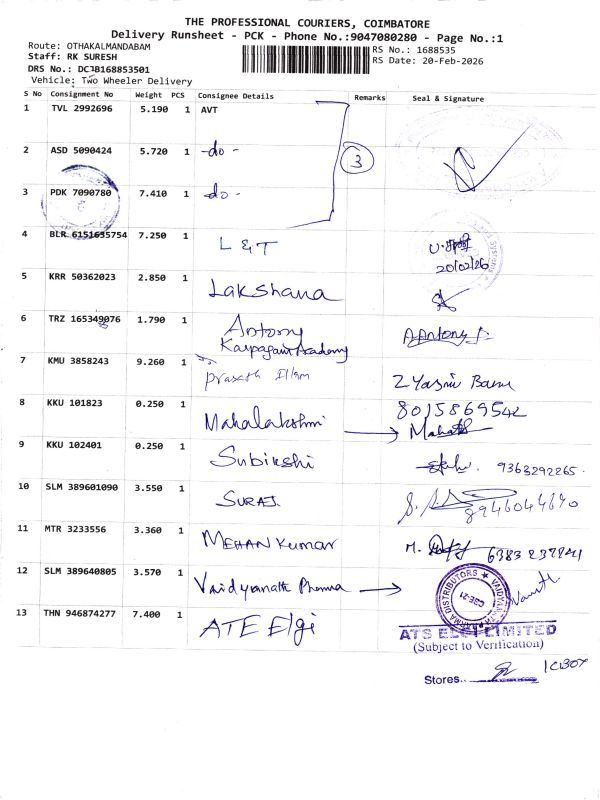 THE PROFESSIONAL COURIERS, COIMBATORE
Delivery Runsheet - PCK - Phone No.:9047080280 - Page No.:1
Route: OTHAKALMANDABAM
Staff: RK SURESH
DRS No.: DCJB168853501
Vehicle: Two Wheeler Delivery
RS No.: 1688535
RS Date: 20-Feb-2026
S No Consignment No Weight PCS Consignee Details Remarks Seal & Signature
1 TVL 2992696 5.190 1 AVT
2 ASD 5090424 5.720 1 -do- 3
3 PDK 7090780 7.410 1 -do-
4 BLR 6151635754 7.250 1 L & T 20/02/26
5 KRR 50362023 2.850 1 Lakshana
6 TRZ 165349076 1.790 1 Antony Karpagam Academy A Antony
7 KMU 3858243 9.260 1 Prasath Illam
8015869542
8 KKU 101823 0.250 1 Mahalakshmi → Maha
9 KKU 102401 0.250 1 Subikshi 9363292265.
10 SLM 389601090 3.550 1 SURAJ 8946044690
11 MTR 3233556 3.360 1 MEHAN Kumar M.
12 SLM 389640805 3.570 1 Vaidyanath Pharma →
CBE-21
13 THN 946874277 7.400 1 ATE Elgi
ATS ELGI LIMITED
(Subject to Verification)
Stores.. 1CBOX